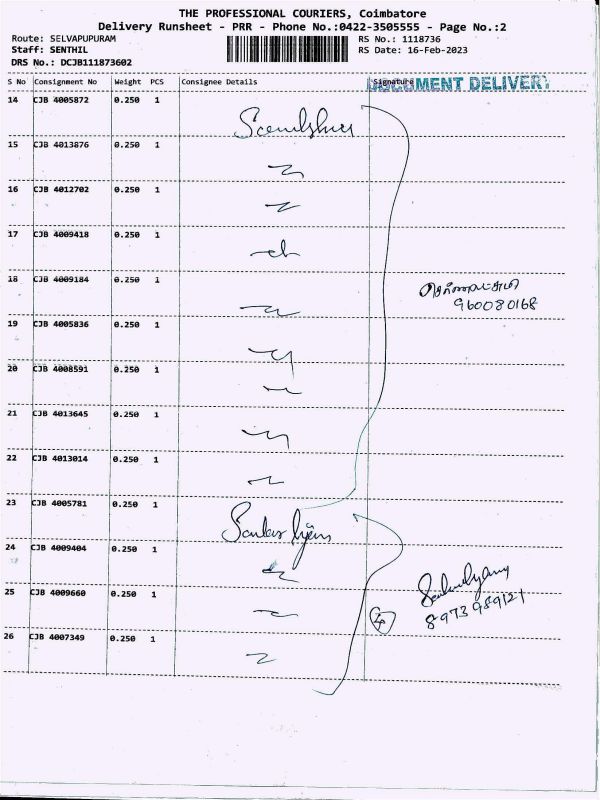 THE PROFESSIONAL COURIERS, Coimbatore
Delivery Runsheet - PRR - Phone No.:0422-3505555 - Page No.:2
Route: SELVAPUPURAM
RS No.: 1118736
Staff: SENTHIL
RS Date: 16-Feb-2023
DRS No.: DCJB111873602
S No Consignment No Weight PCS Consignee Details Signature
DOCUMENT DELIVERY
14 CJB 4005872 0.250 1
15 CJB 4013876 0.250 1
16 CJB 4012702 0.250 1
17 CJB 4009418 0.250 1
18 CJB 4009184 0.250 1
960080168
19 CJB 4005836 0.250 1
20 CJB 4008591 0.250 1
21 CJB 4013645 0.250 1
22 CJB 4013014 0.250 1
23 CJB 4005781 0.250 1
24 CJB 4009404 0.250 1
25 CJB 4009660 0.250 1
8973989121
26 CJB 4007349 0.250 1